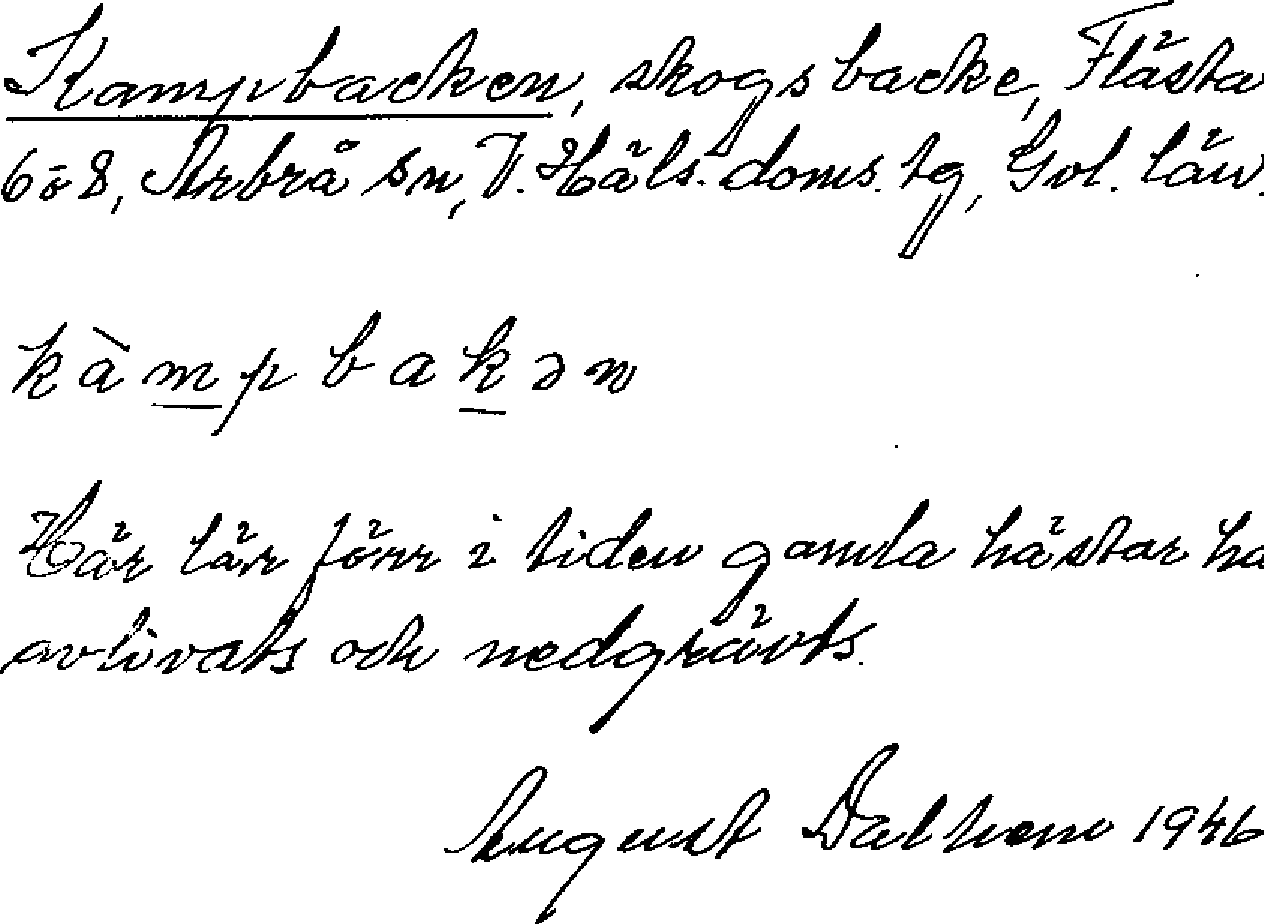 Kampbacken, skogsbacke, Flästa
6 o 8, Arbrå sn, V. Häls. doms. tg, Gvl. län.
kàmpbakən
Här lär förr i tiden gamla hästar ha
avlivats och nedgrävts.
August Dalhem 1946